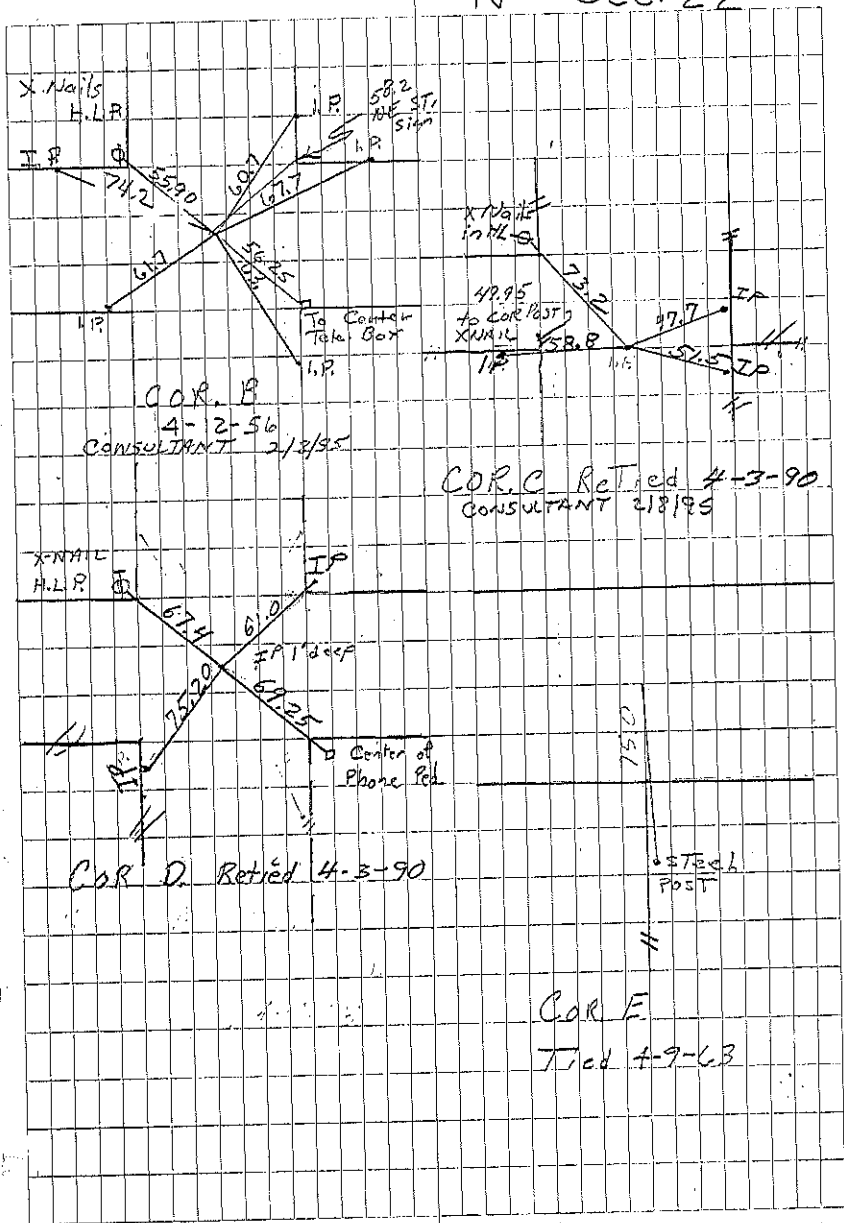 X Nails
H.L.P.
I.P.
74.2
55.90
60.7
I.P.
58.2
NE ST.
sign
I.P.
67.7
61.7
I.P.
56.25
To Center
Tele. Box
I.P.
COR. B
4-12-56
CONSULTANT 2/8/95
X Nails
in HL
73.2
47.7
IP
49.95
to Cor Post
XNAIL
I.P.
58.8
I.P.
51.5
IP
COR. C ReTied 4-3-90
CONSULTANT 2/8/95
X-NAIL
H.L.P.
67.4
61.0
IP
IP 1' deep
75.20
69.25
I.P.
Center of
Phone Ped
COR D. Retied 4-3-90
75.0
STeel
POST
COR E
Tied 4-9-63